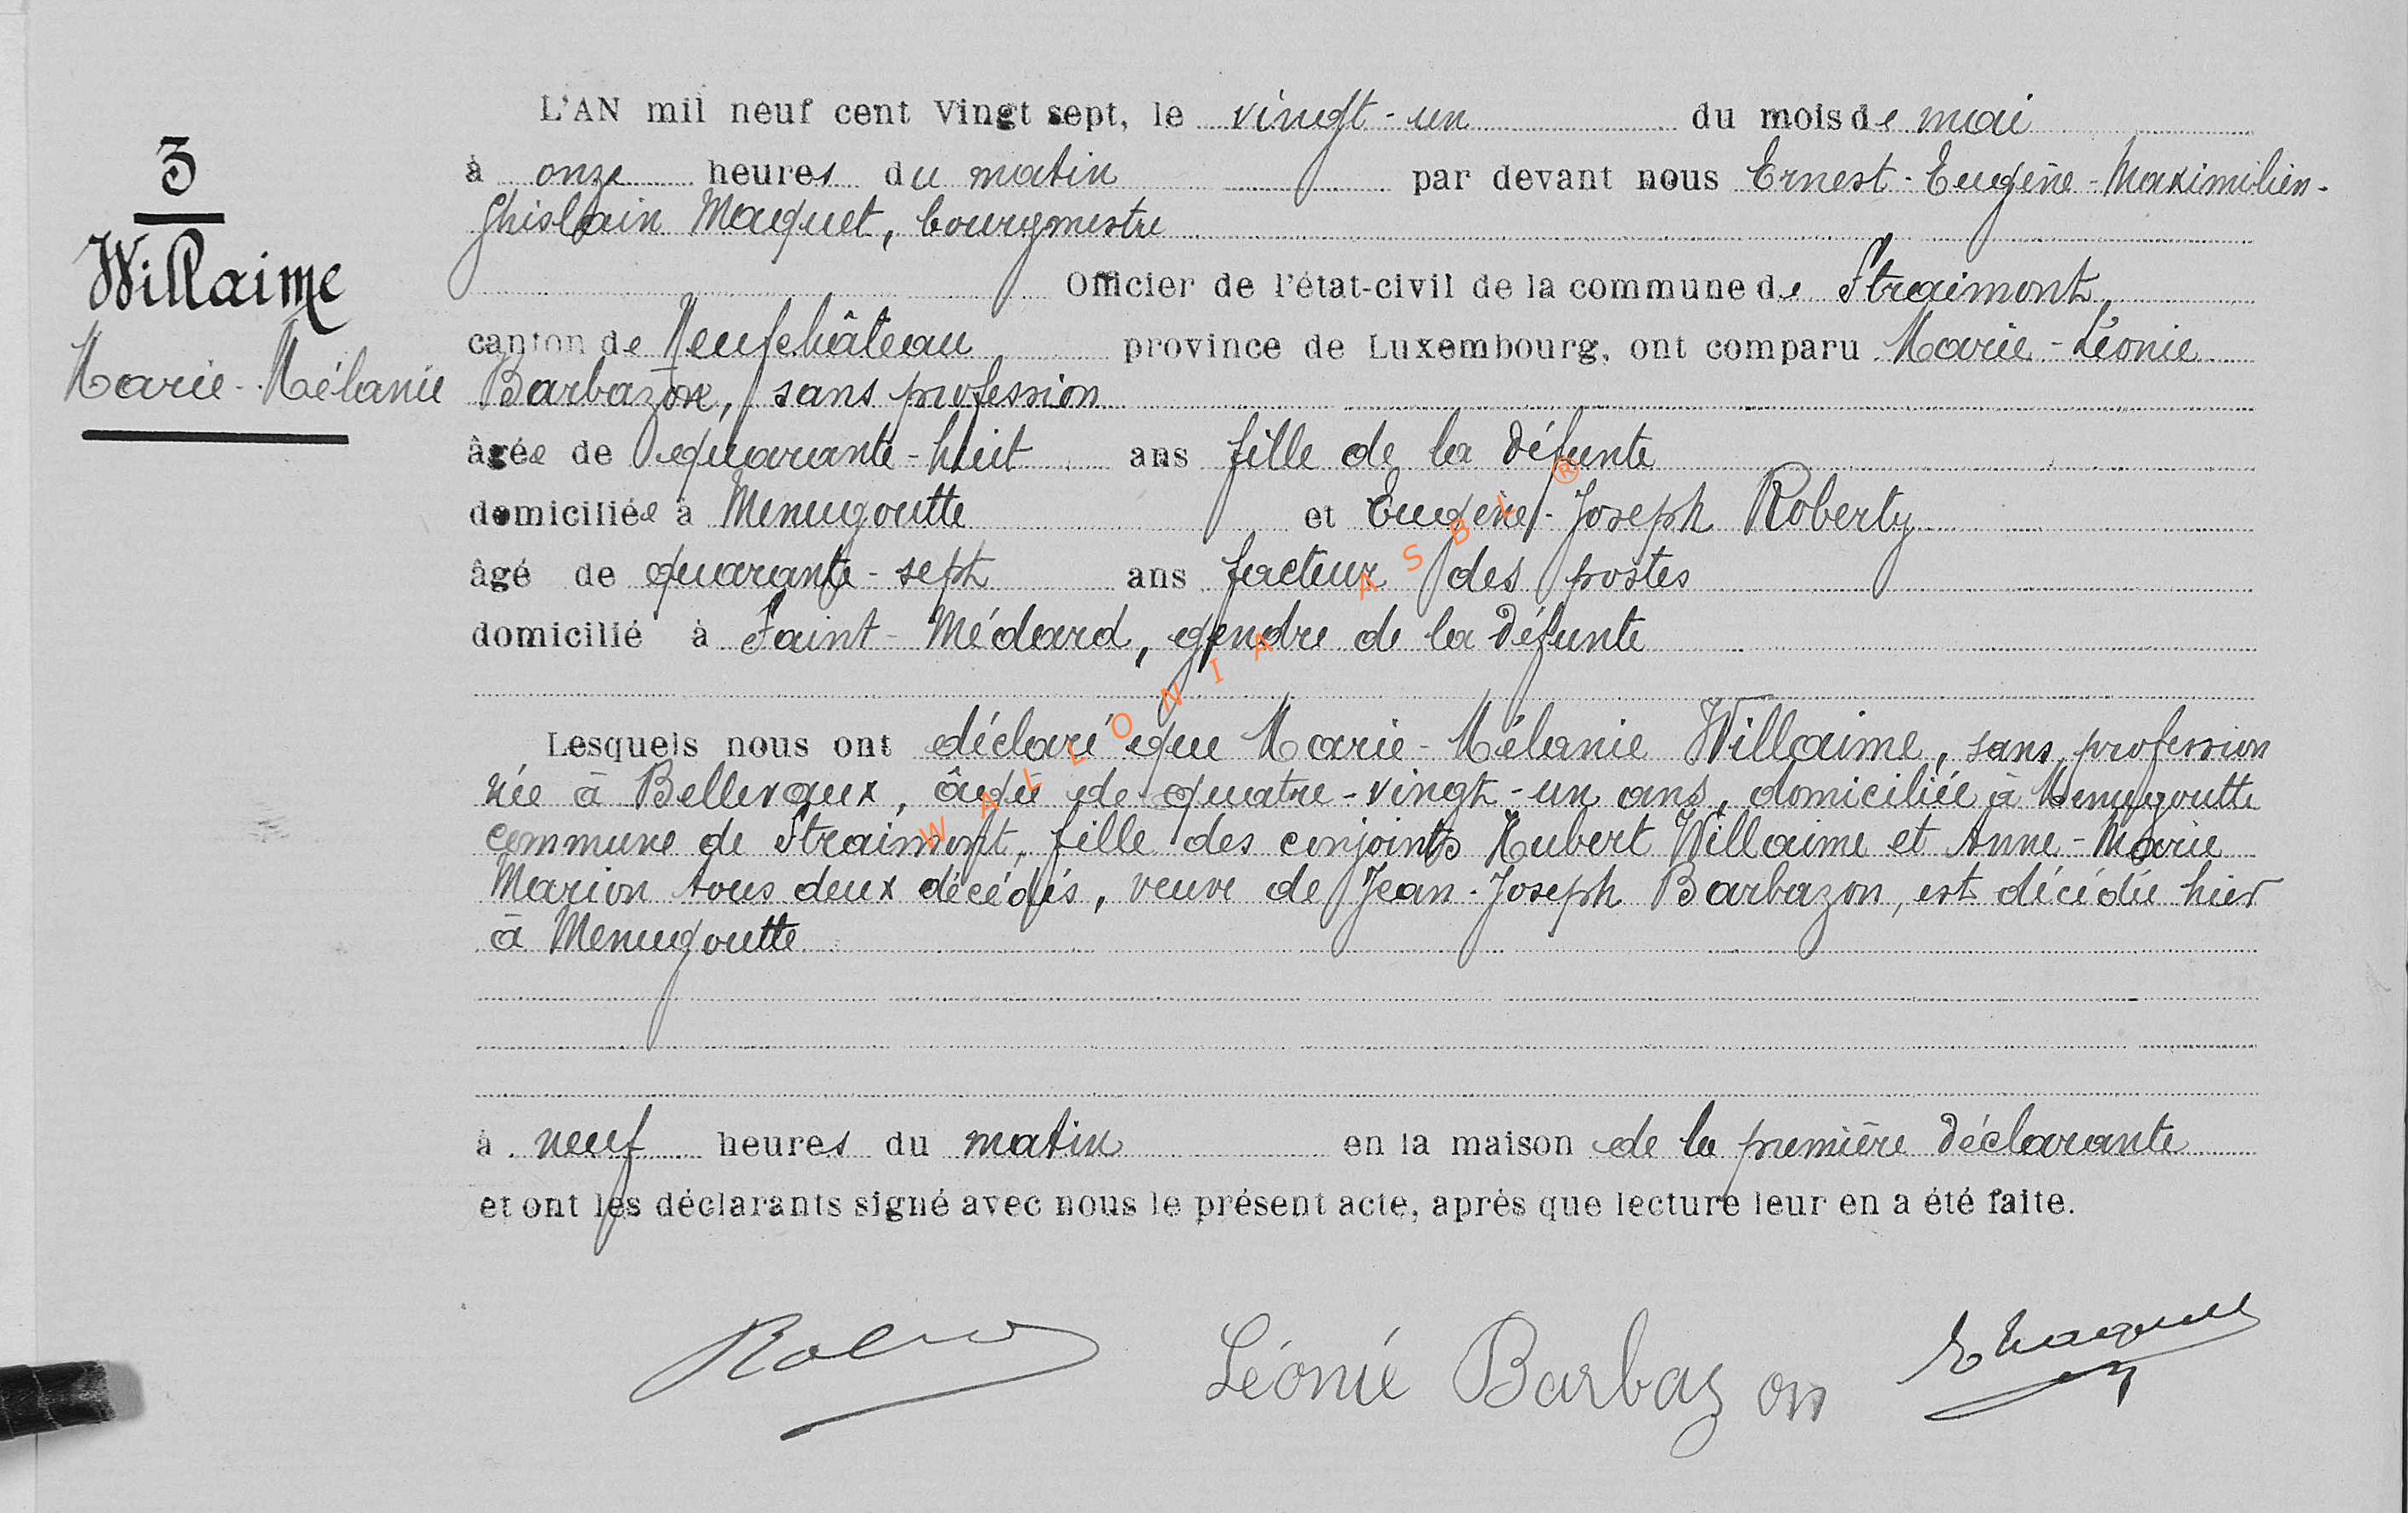 3
Willaime
Marie-Mélanie
L'AN mil neuf cent Vingt sept, le vingt-un du mois de mai
à onze heures du matin par devant nous Ernest-Eugène-Maximilien-
Ghislain Maquet, bourgmestre
Officier de l'état-civil de la commune de Straimont,
canton de Neufchâteau province de Luxembourg, ont comparu Marie-Léonie
Barbazon, sans profession
âgée de quarante-huit ans fille de la défunte
domiciliée à Menugoutte et Eugène-Joseph Roberty
âgé de quarante-sept ans facteur des postes
domicilié à Saint-Médard, gendre de la défunte
Lesquels nous ont déclaré que Marie-Mélanie Willaime, sans profession
née à Bellevaux, âgée de quatre-vingt-un ans, domiciliée à Menugoutte
commune de Straimont, fille des conjoints Hubert Willaime et Anne-Marie
Marion tous deux décédés, veuve de Jean-Joseph Barbazon, est décédée hier
à Menugoutte
à neuf heures du matin en la maison de la première déclarante
et ont les déclarants signé avec nous le présent acte, après que lecture leur en a été faite.
Léonie Barbazon
E Maquet
WALLONIA ASBL ®